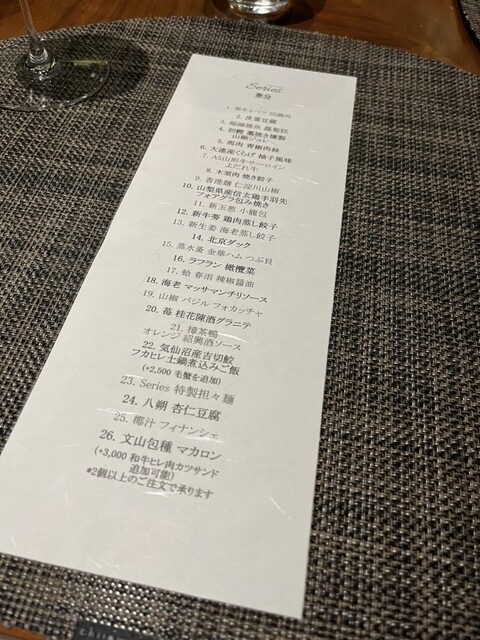 Series
1. 新キャベツ 回鍋肉
2. 皮蛋豆腐
4. 招鯉 藁焼き燻製
山椒ジュレ
5. 馬肉 青椒肉絲
6. 大連産くらげ 柚子風味
7. A5山形牛サーロイン
よだれ牛
8. 木須肉 焼き餃子
9. 香港麺 仁淀川山椒
10. 山梨県産信玄鶏手羽先
フォアグラ包み焼き
11. 新玉葱 小籠包
12. 新牛蒡 鶏肉蒸し餃子
13. 新生姜 海老蒸し餃子
14. 北京ダック
15. 蒸水蛋 金華ハム つぶ貝
16. ラフラン 橄欖菜
17. 蛤 春雨 辣椒醤油
18. 海老 マッサマンチリソース
19. 山椒 バジル フォカッチャ
20. 苺 桂花陳酒グラニテ
21. 樟茶鴨
オレンジ 紹興酒ソース
22. 気仙沼産吉切鮫
フカヒレ土鍋煮込みご飯
(+2,500 毛蟹を追加)
23. Series 特製担々麺
24. 八朔 杏仁豆腐
25. 椰汁 フィナンシェ
26. 文山包種 マカロン
(+3,000 和牛ヒレ肉カツサンド
追加可能)
*2個以上のご注文で承ります